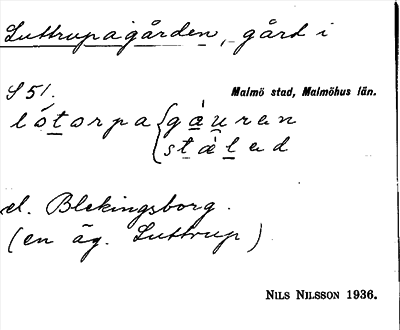 Luttrupagården, gård i
S 51.
Malmö stad, Malmöhus län.
lótorpa { gàuren
stàlad
el. Blekingsborg.
(en äg. Luttrup)
NILS NILSSON 1936.